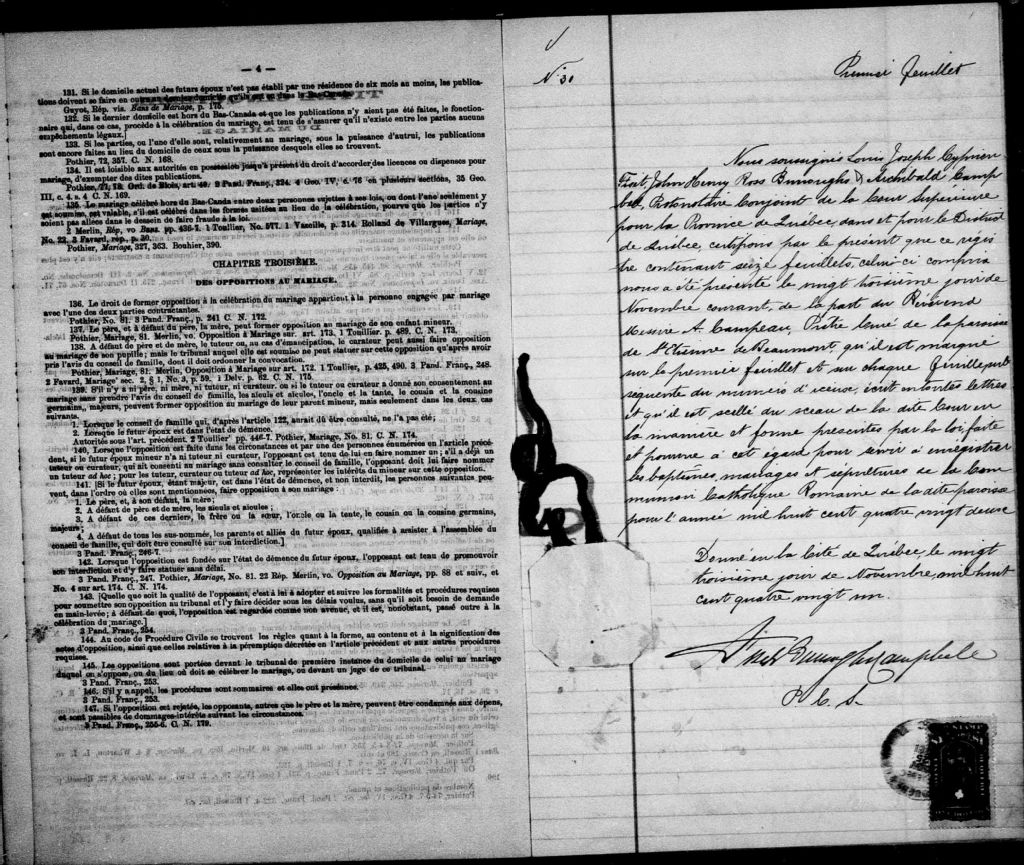 — 4 —
131. Si le domicile actuel des futurs époux n'est pas établi par une résidence de six mois au moins, les publica-
tions doivent se faire en
Guyot, Rép. vis. Bans de Mariage, p. 175.
132. Si le dernier domicile est hors du Bas-Canada et que les publications n'y aient pas été faites, le fonction-
naire qui, dans ce cas, procède à la célébration du mariage, est tenu de s'assurer qu'il n'existe entre les parties aucuns
empêchements légaux.]
133. Si les parties, ou l'une d'elle sont, relativement au mariage, sous la puissance d'autrui, les publications
sont encore faites au lieu du domicile de ceux sous la puissance desquels elles se trouvent.
Pothier, 72, 357. C. N. 168.
134. Il est loisible aux autorités en possession jusqu'à présent du droit d'accorder des licences ou dispenses pour
mariage, d'exempter des dites publications.
Pothier, 77, 78. Ord. de Blois, art. 40. 2 Pand. Franç., 324. 4 Geo. IV, c. 76 en plusieurs sections, 35 Geo.
III, c. 4. s. 4 C. N. 169.
135. Le mariage célébré hors du Bas-Canada entre deux personnes sujettes à ses lois, ou dont l'une seulement y
est soumise, est valable, s'il est célébré dans les formes usitées au lieu de la célébration, pourvu que les parties n'y
soient pas allées dans le dessein de faire fraude à la loi.
2 Merlin, Rép, vo Bans. pp. 436-7. 1 Toullier, No. 577. 1 Vazeille, p. 314. Rolland de Villargues, Mariage,
No. 22. 3 Favard, rép., p. 30.
Pothier, Mariage, 327, 363. Bouhier, 390.
CHAPITRE TROISIÈME.
DES OPPOSITIONS AU MARIAGE.
136. Le droit de former opposition à la célébration du mariage appartient à la personne engagée par mariage
avec l'une des deux parties contractantes.
Pothier, No. 81. 3 Pand. Franç., p. 241 C. N. 172.
137. Le père, et à défaut du père, la mère, peut former opposition au mariage de son enfant mineur.
Pothier, Mariage, 81. Merlin, vo. Opposition à Mariage sur. art. 173, 1 Toullier. p. 489. C. N. 173.
138. A défaut de père et de mère, le tuteur ou, au cas d'émancipation, le curateur peut aussi faire opposition
au mariage de son pupille; mais le tribunal auquel elle est soumise ne peut statuer sur cette opposition qu'après avoir
pris l'avis du conseil de famille, dont il doit ordonner la convocation.
Pothier, Mariage, 81. Merlin, Opposition à Mariage sur art. 172. 1 Toullier, p. 425, 490. 3 Pand. Franç., 248.
2 Favard, Mariage' sec. 2, § 1, No. 3, p. 59. 1 Delv. p. 62. C. N. 175.
139. S'il n'y a ni père, ni mère, ni tuteur, ni curateur, ou si le tuteur ou curateur a donné son consentement au
mariage sans prendre l'avis du conseil de famille, les aïeuls et aïeules, l'oncle et la tante, le cousin et la cousine
germains, majeurs, peuvent former opposition au mariage de leur parent mineur, mais seulement dans les deux cas
suivants.
1. Lorsque le conseil de famille qui, d'après l'article 122, aurait dû être consulté, ne l'a pas été;
2. Lorsque le futur époux est dans l'état de démence.
Autorités sous l'art. précédent. 2 Toullier pp. 446-7. Pothier, Mariage, No. 81. C. N. 174.
140. Lorsque l'opposition est faite dans les circonstances et par une des personnes énumérées en l'article précé-
dent, si le futur époux mineur n'a ni tuteur ni curateur, l'opposant est tenu de lui en faire nommer un; s'il a déjà un
tuteur ou curateur, qui ait consenti au mariage sans consulter le conseil de famille, l'opposant doit lui faire nommer
un tuteur ad hoc; pour les tuteur, curateur ou tuteur ad hoc, représenter les intérêts du mineur sur cette opposition.
141. Si le futur époux, étant majeur, est dans l'état de démence, et non interdit, les personnes suivantes peu-
vent, dans l'ordre où elles sont mentionnées, faire opposition à son mariage:
1. Le père, et, à son défaut, la mère;
2. A défaut de père et de mère, les aïeuls et aïeules;
3. A défaut de ces derniers, le frère ou la sœur, l'oncle ou la tante, le cousin ou la cousine germains,
majeurs;
4. A défaut de tous les sus-nommés, les parents et alliés du futur époux, qualifiés à assister à l'assemblée du
conseil de famille, qui doit être consulté sur son interdiction.]
3 Pand. Franç., 246-7.
142. Lorsque l'opposition est fondée sur l'état de démence du futur époux, l'opposant est tenu de promouvoir
son interdiction et d'y faire statuer sans délai.
3 Pand. Franç., 247. Pothier, Mariage, No. 81. 22 Rép. Merlin, vo. Opposition au Mariage, pp. 88 et suiv., et
No. 4 sur art. 174. C. N. 174.
143. [Quelle que soit la qualité de l'opposant, c'est à lui à adopter et suivre les formalités et procédures requises
pour soumettre son opposition au tribunal et l'y faire décider sous les délais voulus, sans qu'il soit besoin de demande
en main-levée; à défaut de quoi, l'opposition est regardée comme non avenue, et il est, nonobstant, passé outre à la
célébration du mariage.]
3 Pand. Franç., 254.
144. Au code de Procédure Civile se trouvent les règles quant à la forme, au contenu et à la signification des
actes d'opposition, ainsi que celles relatives à la péremption décrétée en l'article précédent et aux autres procédures
requises.
145. Les oppositions sont portées devant le tribunal de première instance du domicile de celui au mariage
duquel on s'oppose, ou du lieu où doit se célébrer le mariage, ou devant un juge de ce tribunal.
3 Pand. Franç., 253.
146. S'il y a appel, les procédures sont sommaires et elles ont préséance.
3 Pand. Franç., 253.
147. Si l'opposition est rejetée, les opposants, autres que le père et la mère, peuvent être condamnés aux dépens,
et sont passibles de dommages-intérêts suivant les circonstances.
3 Pand. Franç., 255-6. C. N. 179.
No 30
Premier feuillet
Nous soussignés Louis Joseph Cyprien
Fiset, John Henry Ross Burroughs & Archibald Camp
bell Protonotaire Conjoint de la Cour Supérieure
pour la Province de Québec, dans et pour le District
de Québec, certifions par le présent que ce régis
tre contenant seize feuillets, celui-ci compris
nous a été présenté le vingt troisième jour de
Novembre courant, de la part du Révérend
Messire A. Campeau, Prêtre Curé de la paroisse
de St Etienne de Beaumont, qu'il est marqué
sur le premier feuillet et sur chaque feuillet sub
séquent du numéro d'iceux, écrit en toutes lettres
et qu'il est scellé du sceau de la dite Cour en
la manière et forme prescrites par la loi, faite
et pourvue à cet égard pour servir à enregistrer
les baptêmes, mariages et sépultures de la Com
munion Catholique Romaine de la dite paroisse
pour l'année mil huit cent quatre vingt deux
Donné en la Cité de Québec, le vingt
troisième jour de Novembre, mil huit
cent quatre vingt un.
Fiset Burroughs Campbell
P. C. S.